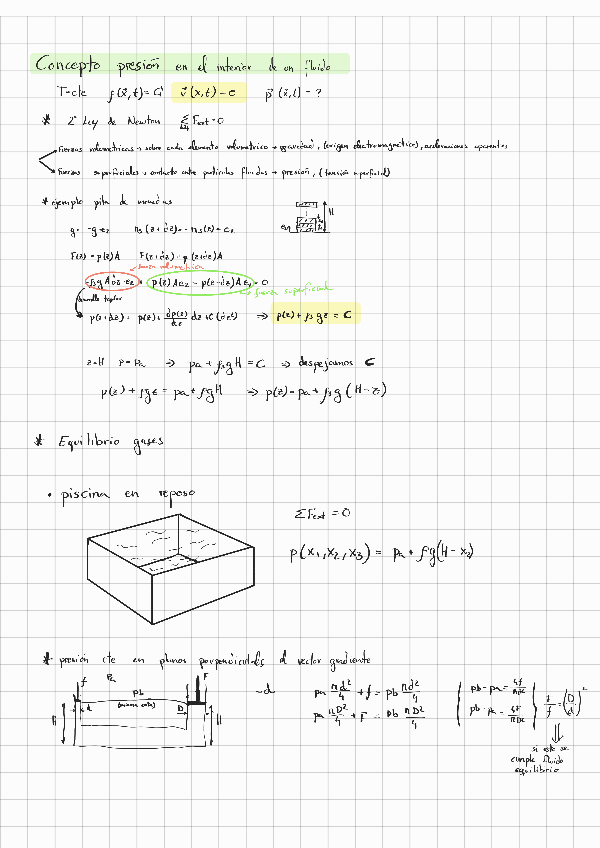 Concepto presión en el interior de un fluido
T=cte ρ(x̄,t)=Cᵗ v̄(x,t)=0 p̄(x̄,t)=?
* 2ª Ley de Newton ΣFext=0
Fuerzas volumetricas → sobre cada elemento volumetrico → gravedad, (origen electromagnético), aceleraciones aparentes
Fuerzas superficiales → contacto entre particulas fluidas → presión, (tensión superficial)
* ejemplo pila de monedas
H
g = -g ez
F(z) = p(z)A F(z+dz) = p(z+dz)A
fuerza volumetrica
-ρs g A dz ez + p(z)A ez - p(z+dz)A ez = 0
fuerza superficial
desarrollo taylor
p(z+dz) = p(z) + dp(z)/dz dz + O(dz²) ⇒ p(z) + ρs g z = C
z=H p=pa → pa + ρs g H = C ⇒ despejamos C
p(z) + ρ g z = pa + ρ g H → p(z) = pa + ρs g (H-z)
* Equilibrio gases
• piscina en reposo
ΣFext = 0
p(x₁,x₂,x₃) = pa + ρ g(H-x₃)
* presión cte en planos perpendiculares al vector gradiente
f Pa F
pb
d D
H H
~d
pa πd²/4 + f = pb πd²/4
pa πD²/4 + F = pb πD²/4
pb-pa = 4f/πd²
pb-pa = 4F/πD²
F/f = (D/d)²
si esto se
cumple fluido
equilibrio